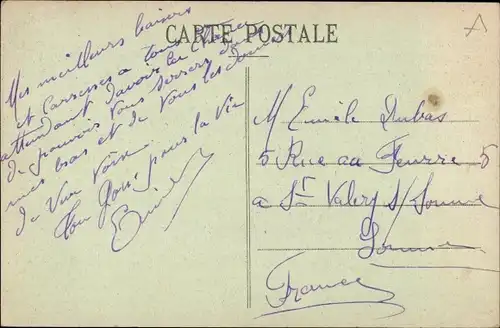 CARTE POSTALE
Mes meilleurs baisers
et Carresses a tous
attendant d'avoir la
de pouvoir vous serrer
mes bras et de vous les donner
de Vive Voix.
Ton pour la Vie
A
M Emile Dubas
5 Rue au Feurre 5
a St Valery s/ Somme
Somme
France